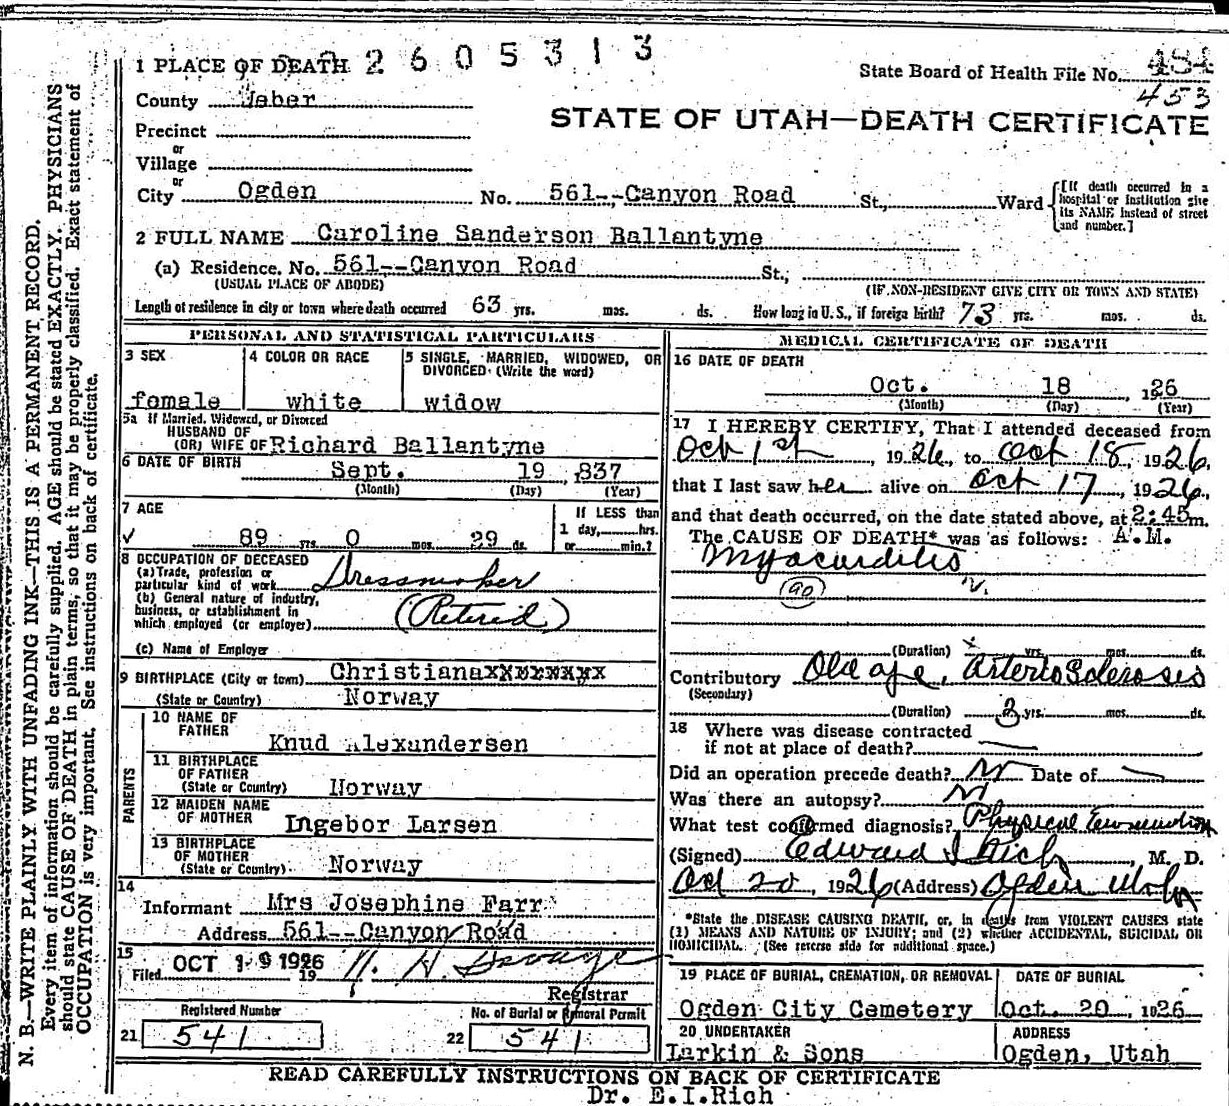 1 PLACE OF DEATH 2 6 0 5 3 1 3
State Board of Health File No. 484
453
County Weber
STATE OF UTAH—DEATH CERTIFICATE
Precinct
or
Village
or
City Ogden No. 561--Canyon Road St., Ward
[If death occurred in a hospital or institution give its NAME instead of street and number.]
2 FULL NAME Caroline Sanderson Ballantyne
(a) Residence. No. 561--Canyon Road St.,
(USUAL PLACE OF ABODE) (IF NON-RESIDENT GIVE CITY OR TOWN AND STATE)
Length of residence in city or town where death occurred 63 yrs. mos. ds. How long in U. S., if foreign birth? 73 yrs. mos. ds.
PERSONAL AND STATISTICAL PARTICULARS
3 SEX
female
4 COLOR OR RACE
white
5 SINGLE, MARRIED, WIDOWED, OR
DIVORCED (Write the word)
widow
5a If Married, Widowed, or Divorced
HUSBAND OF
(OR) WIFE OF Richard Ballantyne
6 DATE OF BIRTH Sept. 19 ,837
(Month) (Day) (Year)
7 AGE
89 yrs. 0 mos. 29 ds.
If LESS than
1 day,......hrs.
or......min.?
8 OCCUPATION OF DECEASED
(a) Trade, profession or
particular kind of work Dressmaker
(b) General nature of industry,
business, or establishment in
which employed (or employer) (Retired)
(c) Name of Employer
9 BIRTHPLACE (City or town) Christianaxxxxxxxx
(State or Country) Norway
PARENTS
10 NAME OF
FATHER
Knud Alexandersen
11 BIRTHPLACE
OF FATHER
(State or Country) Norway
12 MAIDEN NAME
OF MOTHER Ingebor Larsen
13 BIRTHPLACE
OF MOTHER
(State or Country) Norway
14
Informant Mrs Josephine Farr
Address 561--Canyon Road
15
Filed OCT 19 1926 19
Registrar
Registered Number
21 541
No. of Burial or Removal Permit
22 541
MEDICAL CERTIFICATE OF DEATH
16 DATE OF DEATH
Oct. 18 , 1926
(Month) (Day) (Year)
17 I HEREBY CERTIFY, That I attended deceased from
Oct 1st, 1926, to Oct 18, 1926,
that I last saw her alive on Oct 17, 1926,
and that death occurred, on the date stated above, at 2:45 m.
The CAUSE OF DEATH* was as follows: A.M.
Myocarditis
90
(Duration) yrs. mos. ds.
Contributory Old age, Arteriosclerosis
(Secondary)
(Duration) 3 yrs. mos. ds.
18 Where was disease contracted
if not at place of death?
Did an operation precede death? N Date of
Was there an autopsy? N
What test confirmed diagnosis? Physical Examination
(Signed) Edward I Rich, M. D.
Oct 20, 1926 (Address) Ogden Utah
*State the DISEASE CAUSING DEATH, or, in deaths from VIOLENT CAUSES state
(1) MEANS AND NATURE OF INJURY; and (2) whether ACCIDENTAL, SUICIDAL OR
HOMICIDAL. (See reverse side for additional space.)
19 PLACE OF BURIAL, CREMATION, OR REMOVAL
Ogden City Cemetery
DATE OF BURIAL
Oct. 20, 1926
20 UNDERTAKER
Larkin & Sons
ADDRESS
Ogden, Utah
READ CAREFULLY INSTRUCTIONS ON BACK OF CERTIFICATE
Dr. E.I.Rich
N. B.—WRITE PLAINLY WITH UNFADING INK—THIS IS A PERMANENT RECORD.
Every item of information should be carefully supplied. AGE should be stated EXACTLY. PHYSICIANS
should state CAUSE OF DEATH in plain terms, so that it may be properly classified. Exact statement of
OCCUPATION is very important. See instructions on back of certificate.